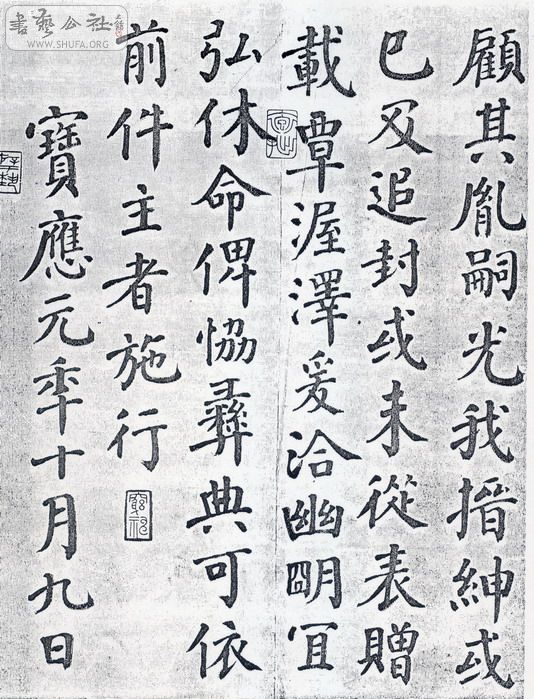 書藝公社
WWW.SHUFA.ORG
顧其胤嗣光我搢紳或
已及追封或未從表贈
載覃渥澤爰洽幽明宜
弘休命俾恊彝典可依
前件主者施行
寶應元年十月九日